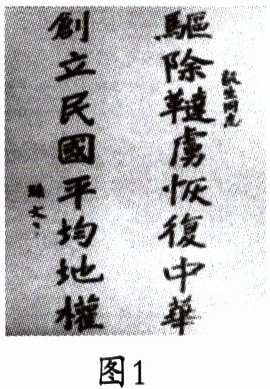 同志
驅除韃虜恢復中華
創立民國平均地權
孫文
图1